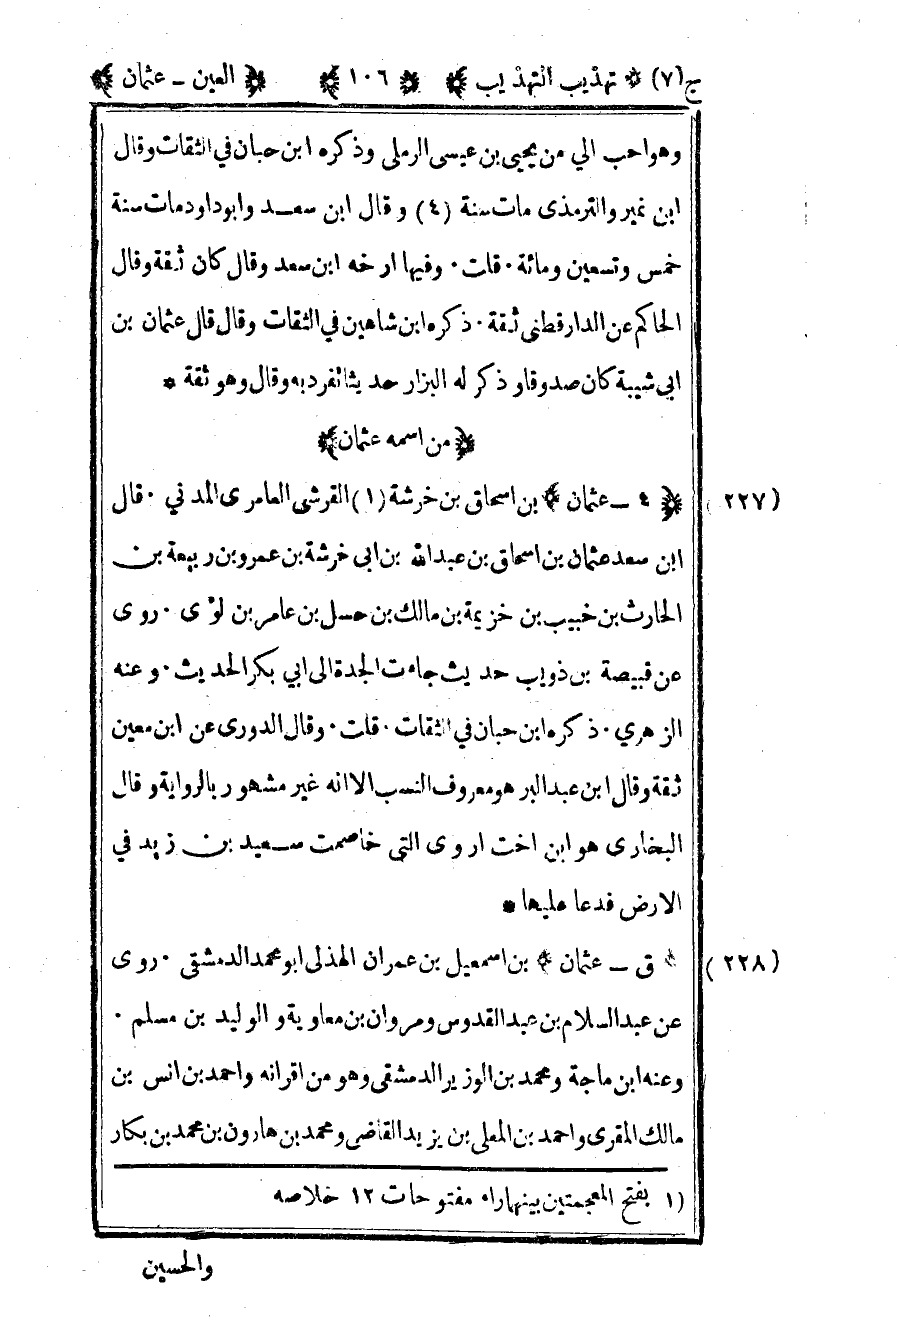 ج(٧) * تهذيب التهذيب ﴿ ١٠٦ ﴾ ﴿ العين ــ عثمان ﴾
وهو احب الي من يحيى بن عيسى الرملى وذكره ابن حبان في الثقات وقال
ابن نمير والترمذى مات سنة (٤) و قال ابن سعد وابو داود مات سنة
خمس وتسعين ومائة ٠ قلت ٠ وفيها ارخه ابن سعد وقال كان ثقة وقال
الحاكم عن الدار قطنى ثقة ٠ ذكره ابن شاهين في الثقات وقال قال عثمان بن
ابي شيبة كان صدوقا و ذكر له البزار حديثا تفرد به وقال وهو ثقة *
﴿ من اسمه عثمان ﴾
(٢٢٧) ﴿ ٤ ــ عثمان ﴾ بن اسحاق بن خرشة (١) القرشى العامرى المدني ٠ قال
ابن سعد عثمان بن اسحاق بن عبد الله بن ابي خرشة بن عمرو بن ربيعة بن
الحارث بن خبيب بن خزيمة بن مالك بن حسل بن عامر بن لؤى ٠ روى
عن قبيصة بن ذويب حديث جاءت الجدة الى ابي بكر الحديث ٠ و عنه
الزهري ٠ ذكره ابن حبان في الثقات ٠ قلت ٠ وقال الدورى عن ابن معين
ثقة وقال ابن عبد البر هو معروف النسب الا انه غير مشهور بالرواية و قال
البخارى هو ابن اخت اروى التى خاصمت سعيد بن زيد في
الارض فدعا عليها *
(٢٢٨) ﴿ ق ــ عثمان ﴾ بن اسمعيل بن عمران الهذلى ابو محمد الدمشقى ٠ روى
عن عبد السلام بن عبد القدوس ومروان بن معاوية و الوليد بن مسلم ٠
وعنه ابن ماجة ومحمد بن الوزير الدمشقى وهو من اقرانه واحمد بن انس بن
مالك المقرى واحمد بن المعلى بن يزيد القاضى ومحمد بن هارون بن محمد بن بكار
(١ بفتح المعجمتين بينهما راء مفتوحات ١٢ خلاصه
والحسين